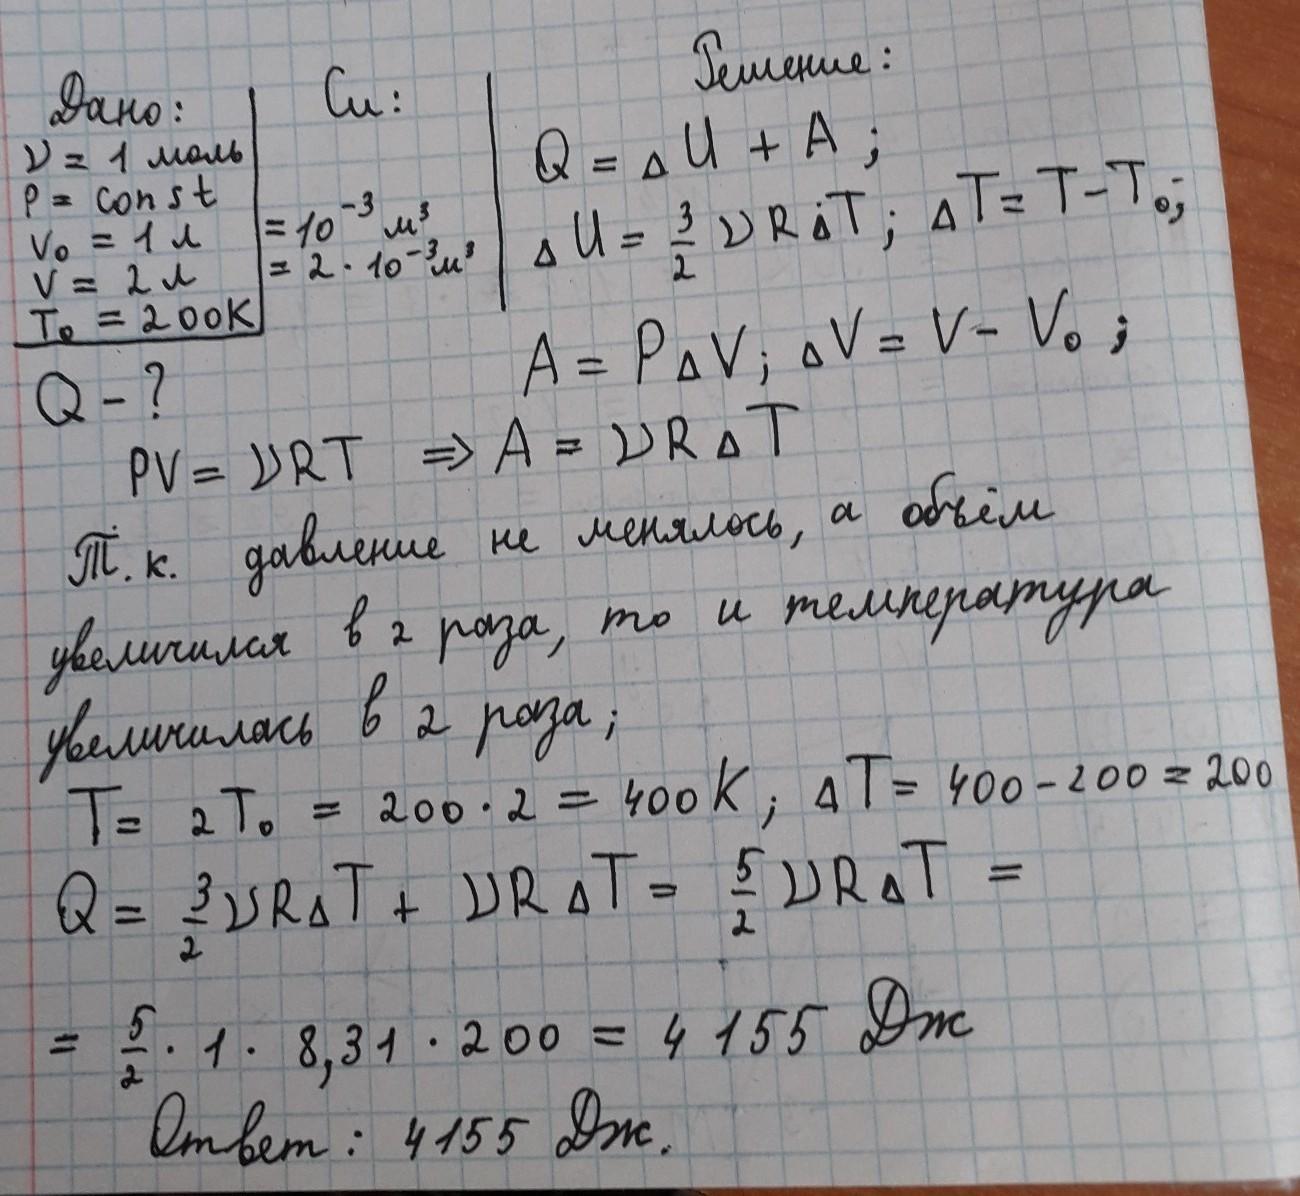 Дано:
ν = 1 моль
P = const
V₀ = 1 л
V = 2 л
T₀ = 200K
Q - ?
Си:
= 10⁻³ м³
= 2 · 10⁻³ м³
Решение:
Q = ΔU + A ;
ΔU = 3/2 νRΔT ; ΔT = T - T₀;
A = PΔV; ΔV = V - V₀ ;
PV = νRT ⇒ A = νRΔT
Т.к. давление не менялось, а объём
увеличился в 2 раза, то и температура
увеличилась в 2 раза;
T = 2T₀ = 200 · 2 = 400K ; ΔT = 400 - 200 = 200
Q = 3/2 νRΔT + νRΔT = 5/2 νRΔT =
= 5/2 · 1 · 8,31 · 200 = 4155 Дж
Ответ: 4155 Дж.